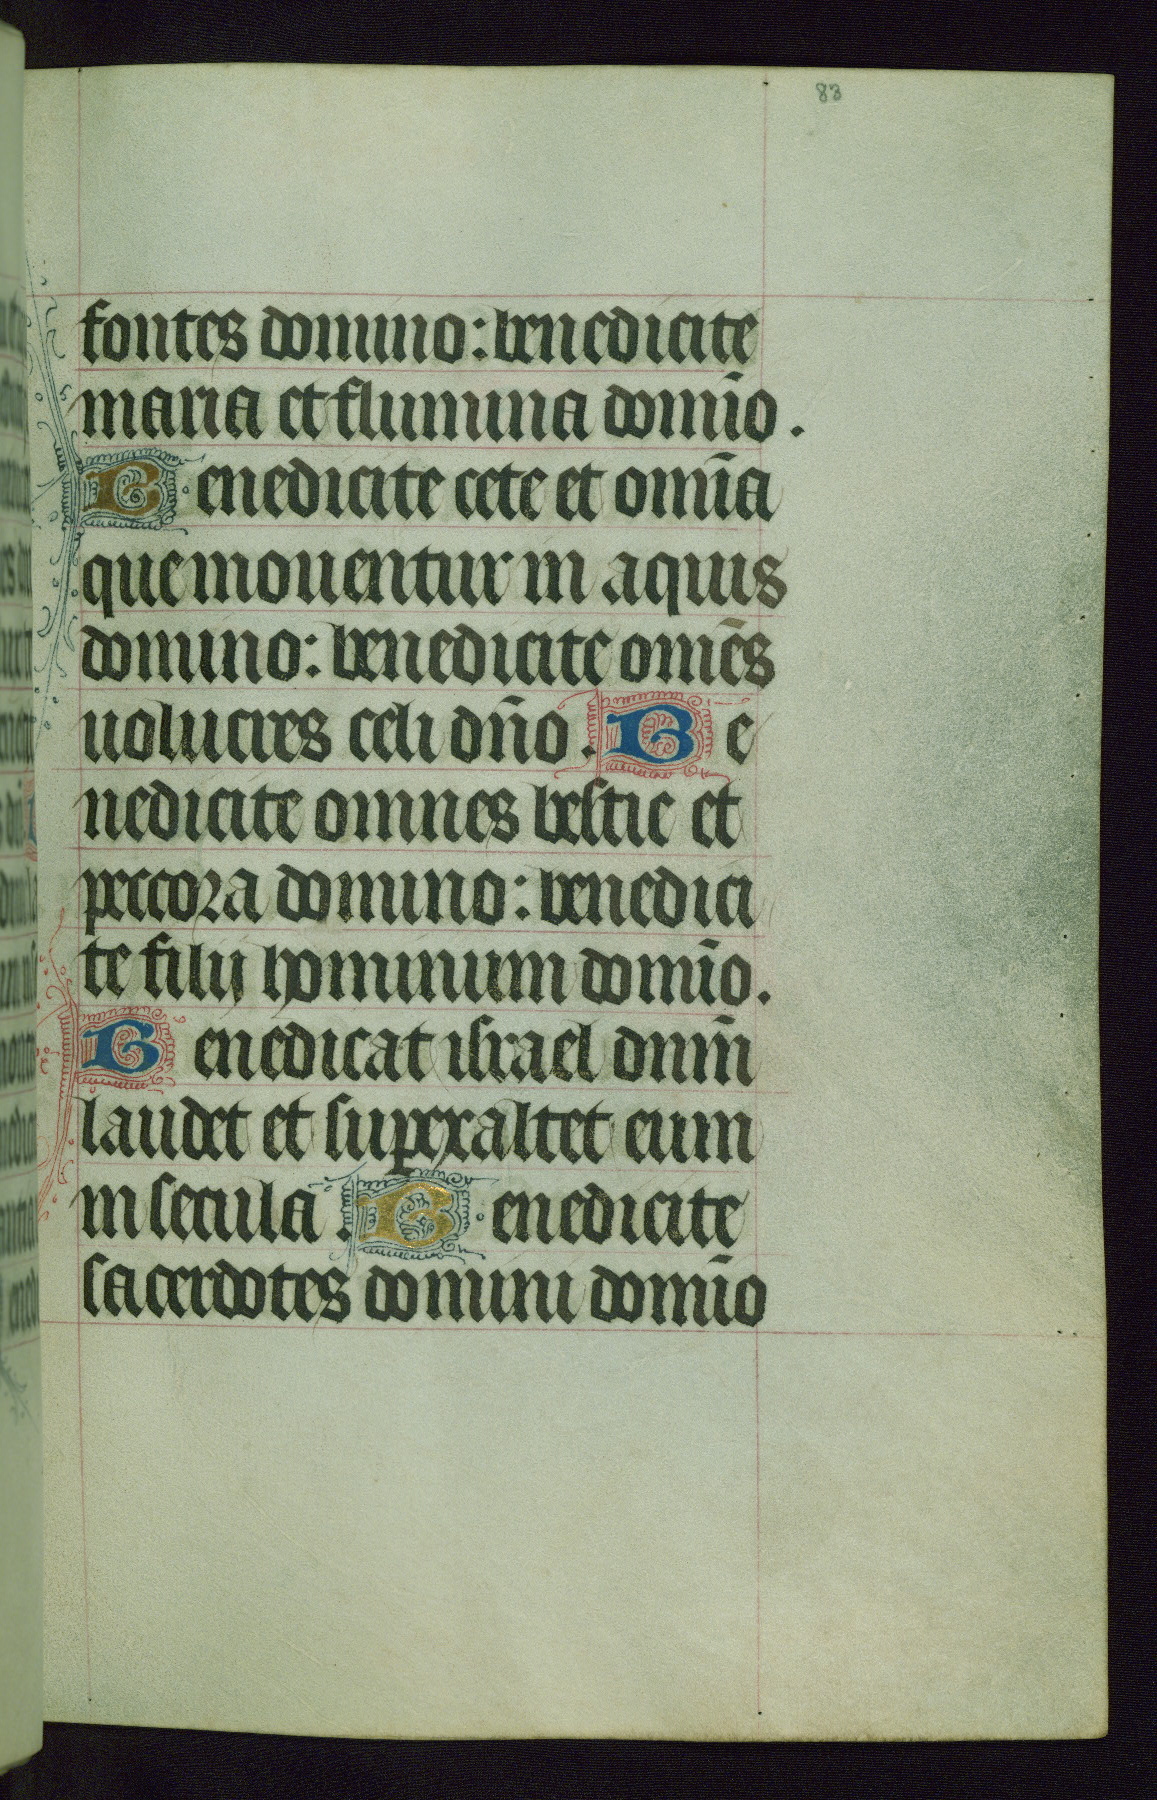 83
fontes domino: benedicite
maria et flumina domīo.
Benedicite cete et omīa
que mouentur in aquis
domino: benedicite omēs
uolucres celi dn̄o. Be
nedicite omnes bestie et
peccora domino: benedici
te filij hominum domīo.
Benedicat israel dnm̄
laudet et superexaltet eum
in secula. Benedicite
sacerdotes domini domīo